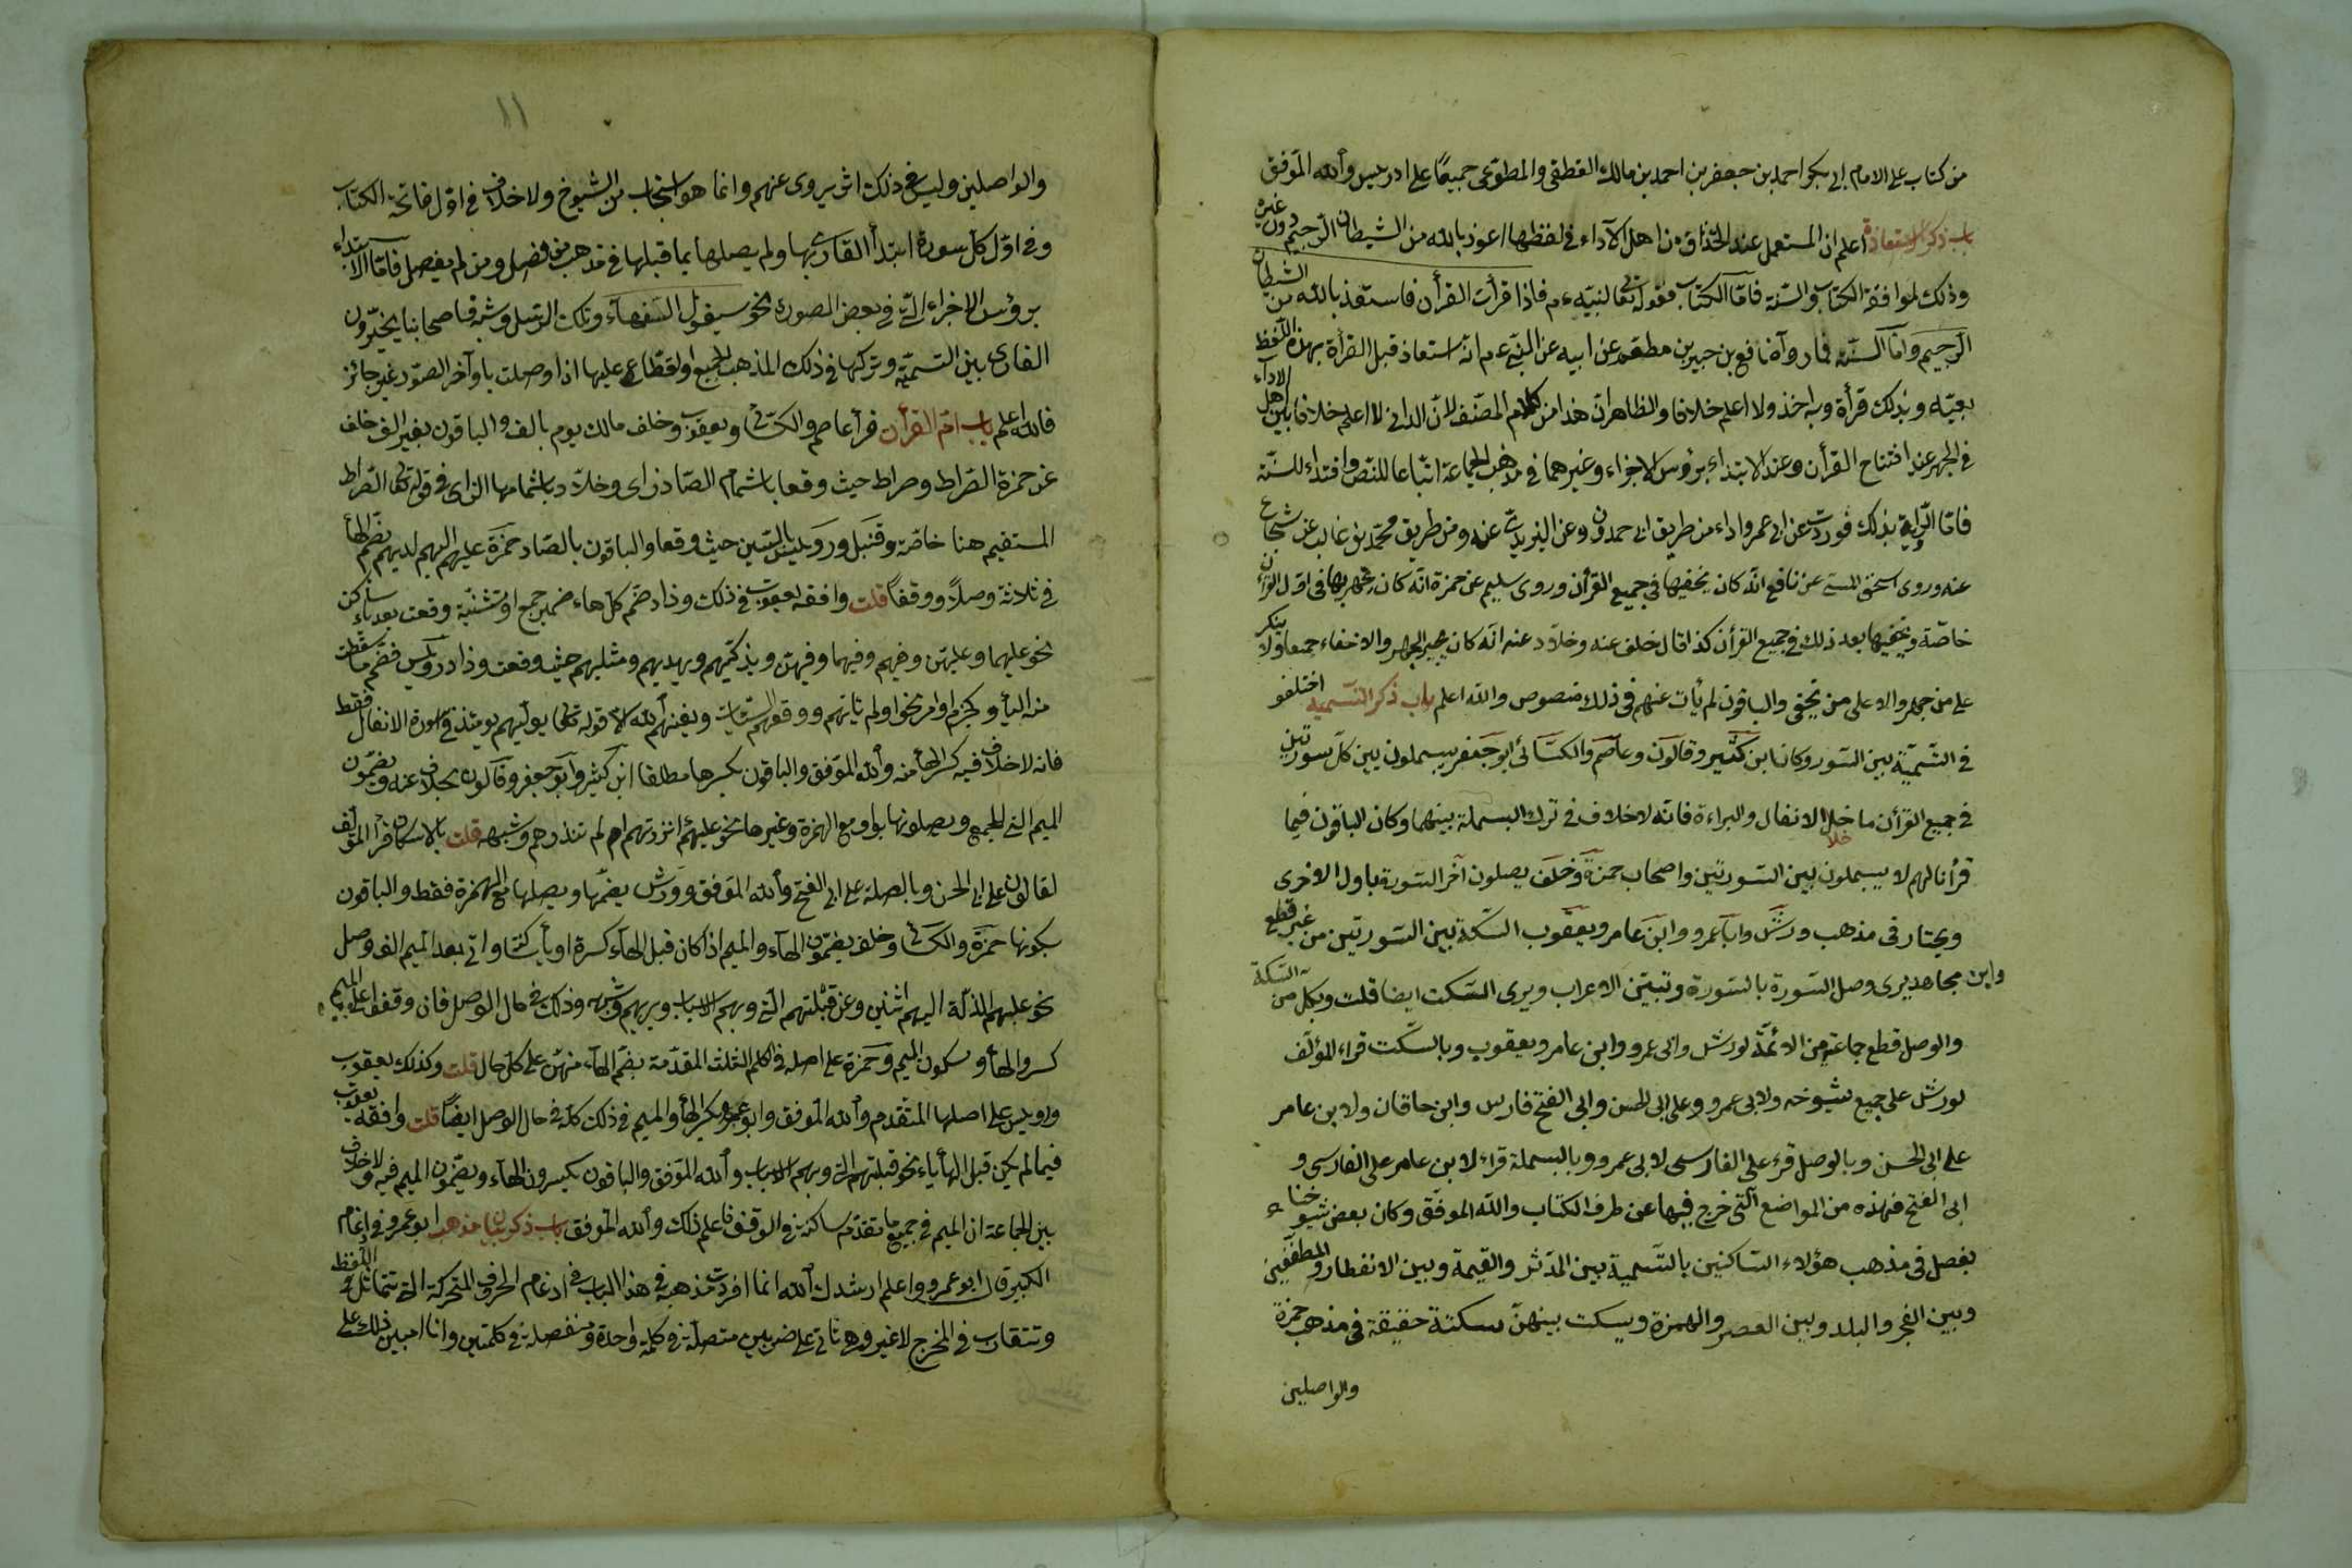 من كتاب على الامام ابى بكر احمد بن جعفر بن احمد بن مالك القطيعى والمطوعى جميعًا على ادريس والله الموفق
باب ذكر الاستعاذة اعلم ان المستعمل عند الحذاق من اهل الآداء فى لفظها اعوذ بالله من الشيطان الرجيم دون غيره
وذلك لموافقة الكتاب والسنة فامّا الكتاب فقوله تعالى لنبيه ءم فاذا قرأت القرأن فاستعذ بالله من الشيطان
الرجيم وامّا السنة فما رواه نافع بن جبير بن مطعم عن ابيه عن النبى ءم انه استعاذ قبل القرأة بهذا اللفظ
بعينه وبذلك قرأة وبه اخذ ولا اعلم خلافا والظاهر ان هذا من كلام المصنف لانّ الدانى لا اعلم خلافا بين اهل الاداء
فى الجهر عند افتتاح القرأن وعند الابتداء برؤس الاجزاء وغيرهما فى مذهب الجماعة اتباعا للنص واقتداء للسنة
فامّا الرواية بذلك فوردت عن ابى عمرو اداء من طريق ابى حمدون وعن اليزيدى عنه ومن طريق محمد بن غالب عن شجاع
عنه وروى اسحق المسيبى عن نافع انه كان يخفيها فى جميع القرأن وروى سليم عن حمزة انه كان يجهر بها فى اول القرأن
خاصّة ويخفيها بعد ذلك فى جميع القرأن كذا قال خلف عنه وخلاد عنه انه كان يجيز الجهر والاخفاء جميعا ولا ينكر
على من جهر ولا على من يخفى والباقون لم يأت عنهم فى ذلك منصوص والله اعلم باب ذكر التسمية اختلفو
فى التسمية بين السور وكان ابن كثير وقالون وعاصم والكسائى ابو جعفر يبسملون بين كل سورتين
فى جميع القرأن ما خلا الانفال والبراءة فانه لا خلاف فى ترك البسملة بينهما وكان الباقون فيما
خلا
قرأنا لهم لا يبسملون بين السورتين واصحاب حمزة وخلف يصلون آخر السورة باول الاخرى
ويختار فى مذهب ورش وابا عمرو وابن عامر ويعقوب السكتة بين السورتين من غير قطع
وابن مجاهد يرى وصل السورة بالسورة وتبيين الاعراب ويرى السكت ايضا قلت وبكل من السكتة
والوصل قطع جماعة من الائمة لورش وابى عمرو وابن عامر ويعقوب وبالسكت قراء المؤلف
لورش على جميع شيوخه ولابى عمرو وعلى ابى الحسن وابى الفتح فارس وابن خاقان ولابن عامر
على ابى الحسن وبالوصل قرء على الفارسى لابى عمرو وبالبسملة قراء لابن عامر على الفارسى و
ابى الفتح فهذه من المواضع التى خرج فيها عن طرف الكتاب والله الموفق وكان بعض شيوخنا
يفصل فى مذهب هؤلاء الساكتين بالتسمية بين المدثر والقيمة وبين الانفطار والمطففين
وبين الفجر والبلد وبين العصر والهمزة ويسكت بينهن سكتة خفيفة فى مذهب حمزة
والواصلين
١١
والواصلين وليس فى ذلك اثر يروى عنهم وانما هو استحباب من الشيوخ ولا خلاف فى اول فاتحة الكتاب
وفى اول كل سورة ابتدأ القارى بها ولم يصلها بما قبلها فى مذهب من فصل ومن لم يفصل فامّا الابتداء
برؤس الاجزاء التى فى بعض الصورة نحو سيقول السفهاء وتلك الرسل وشبهه فاصحابنا يخيّرون
القارى بين التسمية وتركها فى ذلك المذهب الجميع والقطع عليها اذا وصلت باوآخر الصور غير جائز
فالله اعلم باب ام القرأن قرأ عاصم والكسائى ويعقوب وخلف مالك يوم بالف والباقون بغير الف خلف
عن حمزة الصراط وصراط حيث وقعا باشمام الصاد زاى وخلاد باشمامها الزاى فى قوله تعالى الصراط
المستقيم هنا خاصّة وقنبل ورويس بالسين حيث وقعا والباقون بالصاد حمزة عليهم اليهم لديهم بضم الهأ
فى ثلاثة وصلًا ووقفًا قلت وافقه يعقوب فى ذلك وذاد ضم كل هاء ضمير جمع او تثنية وقعت بعد ياء ساكن
نحو عليهما وعليهن وفيهم وفيهما وفيهن ويذكيهم ويهديهم ومثليهم حيث وقعت وذاد رويس فضم ما سقطت
منه اليأ وبجزم او امر نحو اولم ياتهم ووقهم السيئات ويغنهم الله الا قوله تعالى يولهم يومئذ فى سورة الانفال فقط
فانه لا خلاف فيه كسر الهأ منه والله الموفق والباقون بكسرها مطلقا ابن كثير وابو جعفر وقالون بخلاف عنه يضمون
الميم التى للجمع ويصلونها بواو مع الهمزة وغيرها نحو عليهم انذرتهم ام لم تنذرهم وشبهه قلت بالاسكان قرأ المؤلف
لقالون على ابى الحسن وبالصلة على ابى الفتح والله الموفق وورش يضمها ويصلها مع الهمزة فقط والباقون
بسكونها حمزة والكسائى وخلف يضمون الهآء والميم اذا كان قبل الهآء كسرة او يأ ساكنا واتى بعد الميم الف وصل
نحو عليهم الذلة اليهم اثنين وعن قبلتهم التى وبهم الاسباب ويريهم وشبهه وذلك فى حال الوصل فان وقفوا على الميم
كسروا الهأ وسكون الميم وحمزة على اصله فى الكلم الثلث المقدمة بضم الهآء منهن على كل حال قلت وكذلك يعقوب
ورويس على اصلها المتقدم والله الموفق وابو عمرو بكسر الهأ والميم فى ذلك كله فى حال الوصل ايضًا قلت وافقه يعقوب
فيما لم يكن قبل الهأ ياء نحو قبلتهم التى وبهم الاسباب والله الموفق والباقون يكسرون الهآء ويضمون الميم فيه ولا خلاف
بين الجماعة ان الميم فى جميع ما تقدم ساكنة فى الوقف فاعلم ذلك والله الموفق باب ذكر بيان مذهب ابو عمرو فى ادغام
الكبير قال ابو عمرو واعلم ارشدك الله انما افردت مذهبه فى هذا الباب فى ادغام الحروف المتحركة التى تتماثل فى اللفظ
وتتقارب فى المخرج لا غير وهى تاتى على ضربين متصلة فى كلمة واحدة ومنفصلة فى كلمتين وانا ابين ذلك على